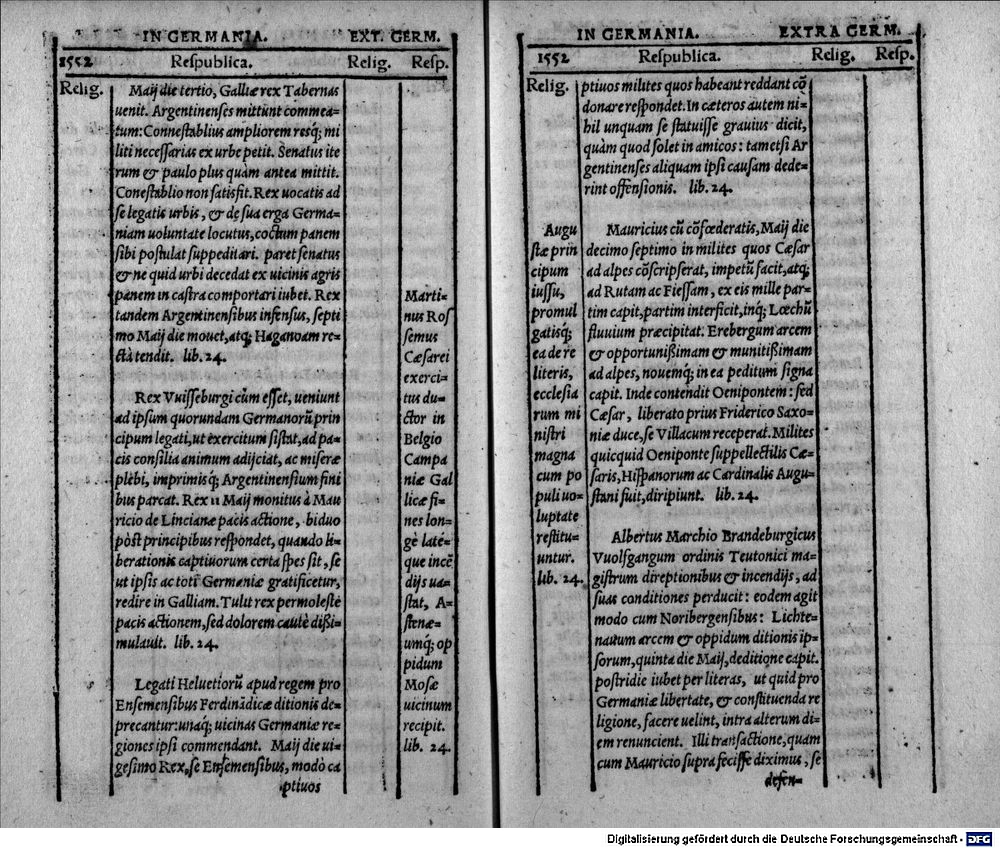 IN GERMANIA. EXT. GERM.
1552 Respublica. Relig. Resp.
Relig.
Maij die tertio, Galliæ rex Tabernas
uenit. Argentinenses mittunt commea-
tum: Connestablius ampliorem resq; mi
liti necessarias ex urbe petit. Senatus ite
rum & paulo plus quàm antea mittit.
Conestablio non satisfit. Rex uocatis ad
se legatis urbis, & de sua erga Germa-
niam uoluntate locutus, coctum panem
sibi postulat suppeditari. paret senatus
& ne quid urbi decedat ex uicinis agris
panem in castra comportari iubet. Rex
tandem Argentinensibus infensus, septi
mo Maij die mouet, atq; Haganoam re-
ctà tendit. lib. 24.
Rex Vuisseburgi cùm esset, ueniunt
ad ipsum quorundam Germanorũ prin
cipum legati, ut exercitum sistat, ad pa-
cis consilia animum adijciat, ac miseræ
plebi, imprimisq; Argentinensium fini
bus parcat. Rex 11 Maij monitus à Mau
ricio de Lincianæ pacis actione, biduo
pòst principibus respondet, quando li-
berationis captiuorum certa spes sit, se
ut ipsis ac toti Germaniæ gratificetur,
redire in Galliam. Tulit rex permolestè
pacis actionem, sed dolorem cautè dißi-
mulauit. lib. 24.
Legati Heluetiorũ apud regem pro
Ensemensibus Ferdinãdicæ ditionis de-
precantur: unaq; uicinas Germaniæ re-
giones ipsi commendant. Maij die ui-
gesimo Rex, se Ensemensibus, modò ca
ptiuos
Marti-
nus Ros
semus
Cæsarei
exerci-
tus du-
ctor in
Belgio
Campa
niæ Gal
licæ fi-
nes lon-
gè latè-
que incẽ
dijs ua-
stat, A-
stenæ-
umq; op
pidum
Mosæ
uicinum
recipit.
lib. 24.
IN GERMANIA. EXTRA GERM.
1552 Respublica. Relig. Resp.
Relig.
ptiuos milites quos habeant reddant cõ
donare respondet. In cæteros autem ni-
hil unquam se statuisse grauius dicit,
quàm quod solet in amicos: tametsi Ar
gentinenses aliquam ipsi causam dede-
rint offensionis. lib. 24.
Augu
stæ prin
cipum
iussu,
promul
gatisq;
ea de re
literis,
ecclesia
rum mi
nistri
magna
cum po
puli uo-
luptate
restitu-
untur.
lib. 24.
Mauricius cũ cõfœderatis, Maij die
decimo septimo in milites quos Cæsar
ad alpes cõscripserat, impetũ facit, atq;
ad Rutam ac Fiessam, ex eis mille par-
tim capit, partim interficit, inq; Lœchũ
fluuium præcipitat. Erebergum arcem
& opportunißimam & munitißimam
ad alpes, nouemq; in ea peditum signa
capit. Inde contendit Oenipontem: sed
Cæsar, liberato prius Friderico Saxo-
niæ duce, se Villacum receperat. Milites
quicquid Oeniponte suppellectilis Cæ-
saris, Hispanorum ac Cardinalis Augu-
stani fuit, diripiunt. lib. 24.
Albertus Marchio Brandeburgicus
Vuolfgangum ordinis Teutonici ma-
gistrum direptionibus & incendijs, ad
suas conditiones perducit: eodem agit
modo cum Noribergensibus: Lichte-
nauum arcem & oppidum ditionis ip-
sorum, quinta die Maij, deditione capit.
postridie iubet per literas, ut quid pro
Germaniæ libertate, & constituenda re
ligione, facere uelint, intra alterum di-
em renuncient. Illi transactione, quam
cum Mauricio supra fecisse diximus, se
defen-
Digitalisierung gefördert durch die Deutsche Forschungsgemeinschaft - DFG